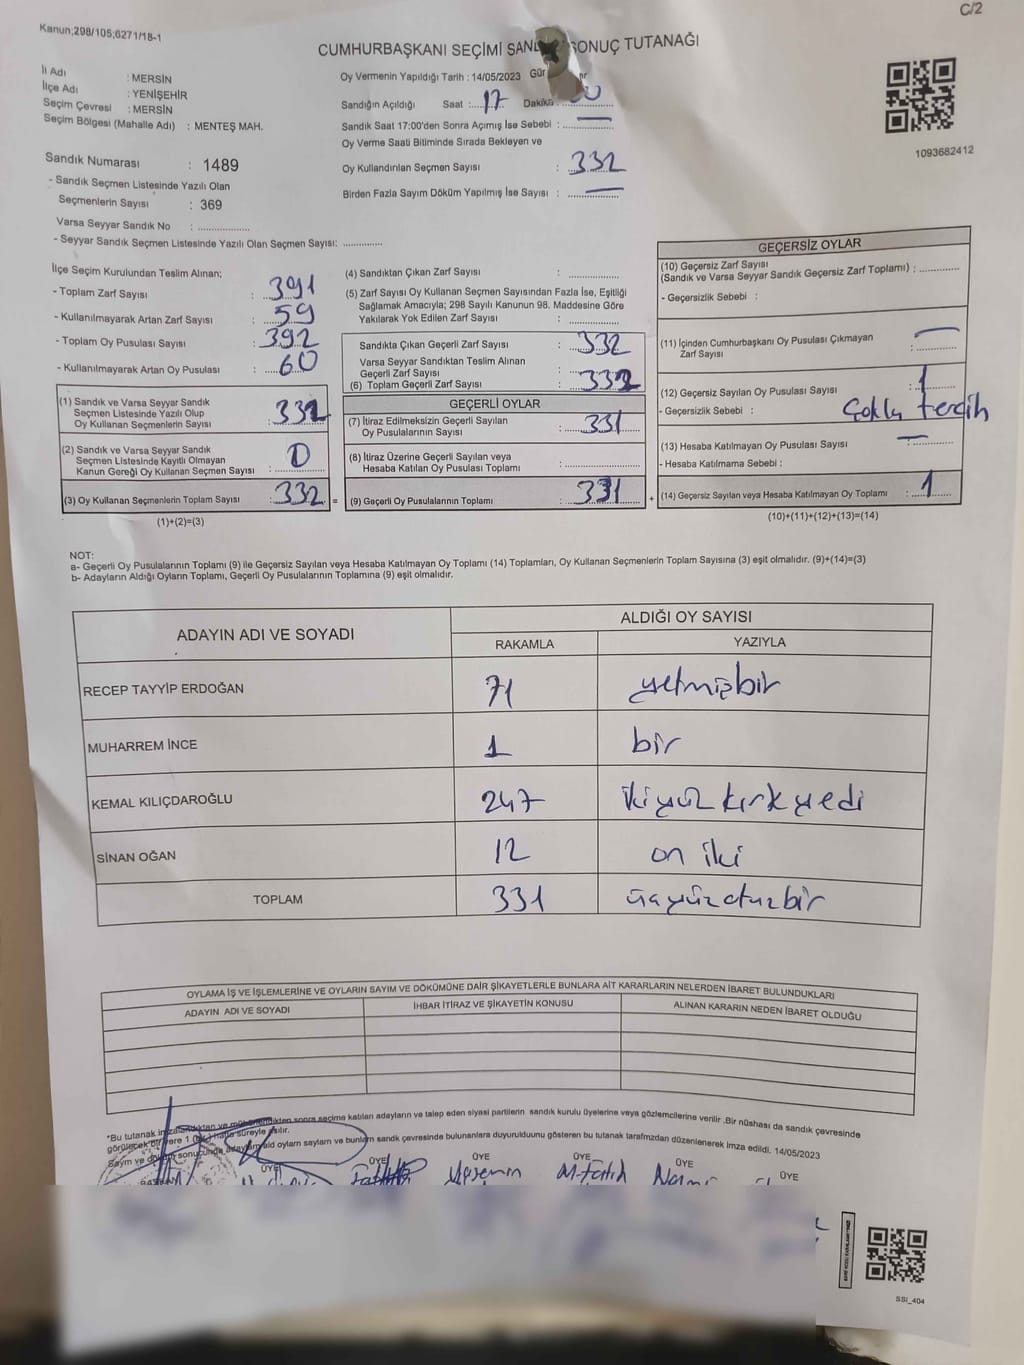 C/2
Kanun;298/105;6271/18-1
CUMHURBAŞKANI SEÇİMİ SONUÇ TUTANAĞI
İl Adı : MERSİN
İlçe Adı : YENİŞEHİR
Seçim Çevresi : MERSİN
Seçim Bölgesi (Mahalle Adı) : MENTEŞ MAH.
Oy Vermenin Yapıldığı Tarih : 14/05/2023
Sandığın Açıldığı Saat : 17 Dakika
Sandık Saat 17:00'den Sonra Açımış İse Sebebi : —
Oy Verme Saati Bitiminde Sırada Bekleyen ve
Oy Kullandırılan Seçmen Sayısı : 332
Birden Fazla Sayım Döküm Yapılmış İse Sayısı : —
1093682412
Sandık Numarası : 1489
- Sandık Seçmen Listesinde Yazılı Olan
Seçmenlerin Sayısı : 369
Varsa Seyyar Sandık No :
- Seyyar Sandık Seçmen Listesinde Yazılı Olan Seçmen Sayısı:
İlçe Seçim Kurulundan Teslim Alınan;
- Toplam Zarf Sayısı : 391
- Kullanılmayarak Artan Zarf Sayısı : 59
- Toplam Oy Pusulası Sayısı : 392
- Kullanılmayarak Artan Oy Pusulası : 60
(1) Sandık ve Varsa Seyyar Sandık
Seçmen Listesinde Yazılı Olup
Oy Kullanan Seçmenlerin Sayısı : 332
(2) Sandık ve Varsa Seyyar Sandık
Seçmen Listesinde Kayıtlı Olmayan
Kanun Gereği Oy Kullanan Seçmen Sayısı : 0
(3) Oy Kullanan Seçmenlerin Toplam Sayısı : 332 =
(1)+(2)=(3)
(4) Sandıktan Çıkan Zarf Sayısı :
(5) Zarf Sayısı Oy Kullanan Seçmen Sayısından Fazla İse, Eşitliği
Sağlamak Amacıyla; 298 Sayılı Kanunun 98. Maddesine Göre
Yakılarak Yok Edilen Zarf Sayısı :
Sandıkta Çıkan Geçerli Zarf Sayısı : 332
Varsa Seyyar Sandıktan Teslim Alınan
Geçerli Zarf Sayısı :
(6) Toplam Geçerli Zarf Sayısı : 332
GEÇERLİ OYLAR
(7) İtiraz Edilmeksizin Geçerli Sayılan
Oy Pusulalarının Sayısı : 331
(8) İtiraz Üzerine Geçerli Sayılan veya
Hesaba Katılan Oy Pusulası Toplamı :
(9) Geçerli Oy Pusulalarının Toplamı : 331 +
GEÇERSİZ OYLAR
(10) Geçersiz Zarf Sayısı
(Sandık ve Varsa Seyyar Sandık Geçersiz Zarf Toplamı) :
- Geçersizlik Sebebi :
(11) İçinden Cumhurbaşkanı Oy Pusulası Çıkmayan
Zarf Sayısı : —
(12) Geçersiz Sayılan Oy Pusulası Sayısı : 1
- Geçersizlik Sebebi : Çoklu tercih
(13) Hesaba Katılmayan Oy Pusulası Sayısı : —
- Hesaba Katılmama Sebebi :
(14) Geçersiz Sayılan veya Hesaba Katılmayan Oy Toplamı : 1
(10)+(11)+(12)+(13)=(14)
NOT:
a- Geçerli Oy Pusulalarının Toplamı (9) ile Geçersiz Sayılan veya Hesaba Katılmayan Oy Toplamı (14) Toplamları, Oy Kullanan Seçmenlerin Toplam Sayısına (3) eşit olmalıdır. (9)+(14)=(3)
b- Adayların Aldığı Oyların Toplamı, Geçerli Oy Pusulalarının Toplamına (9) eşit olmalıdır.
ADAYIN ADI VE SOYADI
ALDIĞI OY SAYISI
RAKAMLA YAZIYLA
RECEP TAYYİP ERDOĞAN 71 yetmişbir
MUHARREM İNCE 1 bir
KEMAL KILIÇDAROĞLU 247 ikiyüzkırkyedi
SİNAN OĞAN 12 on iki
TOPLAM 331 üçyüzotuzbir
OYLAMA İŞ VE İŞLEMLERİNE VE OYLARIN SAYIM VE DÖKÜMÜNE DAİR ŞİKAYETLERLE BUNLARA AİT KARARLARIN NELERDEN İBARET BULUNDUKLARI
ADAYIN ADI VE SOYADI İHBAR İTİRAZ VE ŞİKAYETİN KONUSU ALINAN KARARIN NEDEN İBARET OLDUĞU
*Bu tutanak sonra seçime katılan adayların ve talep eden siyasi partilerin sandık kurulu üyelerine veya gözlemcilerine verilir .Bir nüshası da sandık çevresinde
görülecek bir yere 1 hafta süreyle asılır.
Sayım ve döküm sonucunda oyların sayların ve bunların sandık çevresinde bulunanlara duyurulduğunu gösteren bu tutanak tarafımzdan düzenlenerek imza edildi. 14/05/2023
ÜYE ÜYE ÜYE ÜYE ÜYE ÜYE
Yasemin M.Fatih
SSI_404